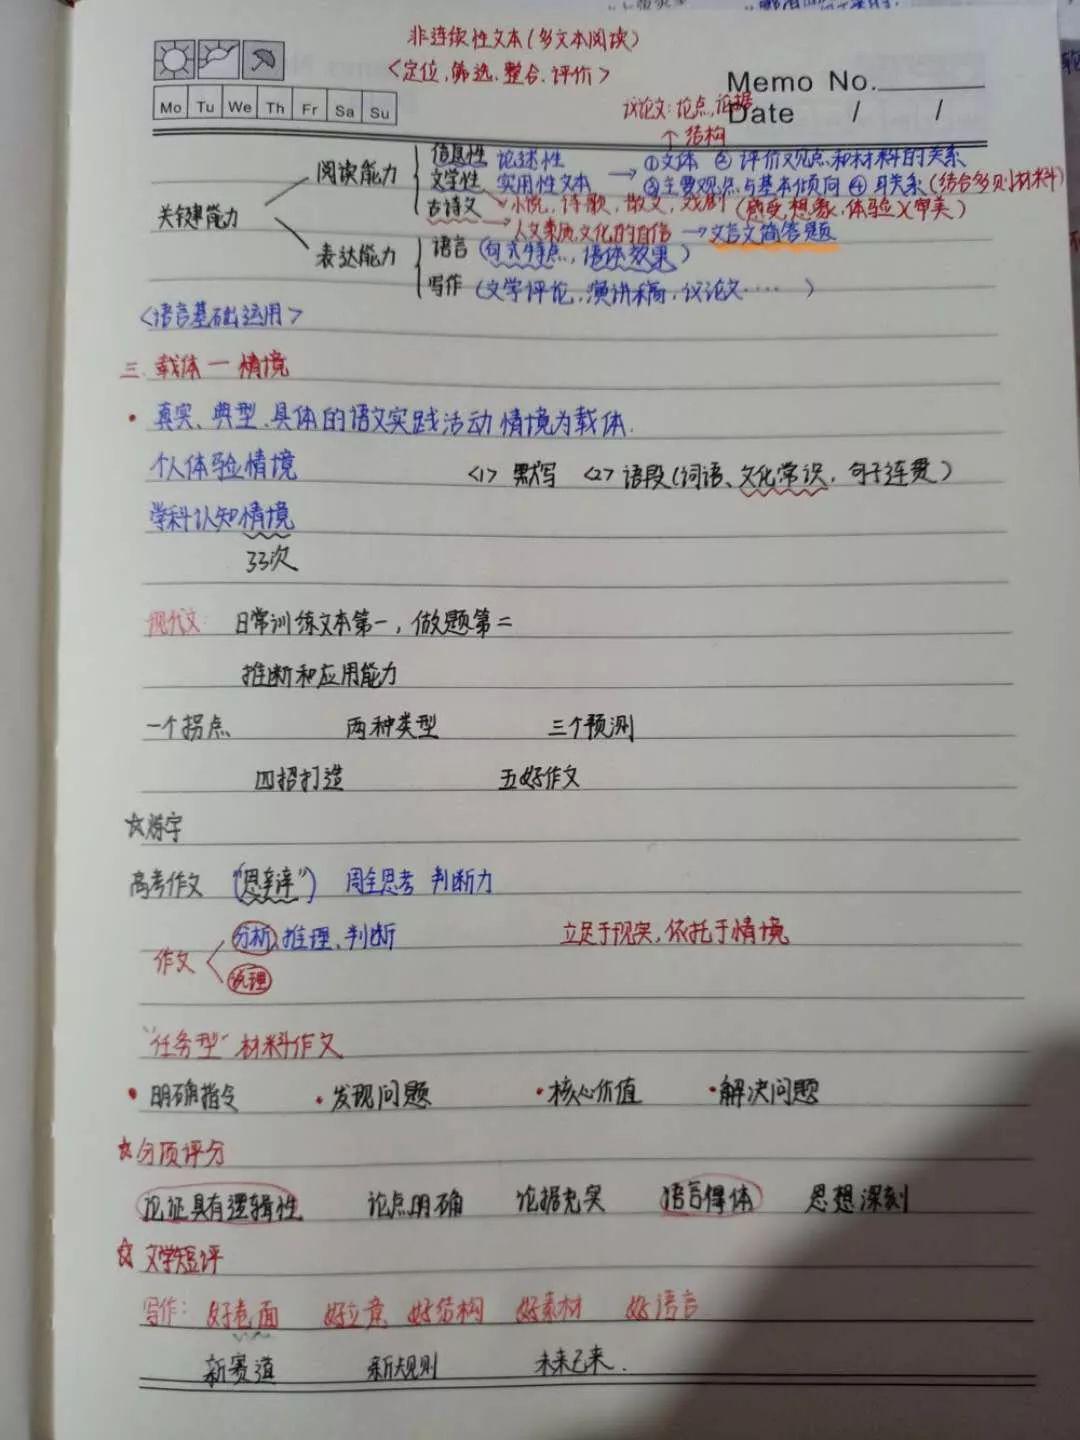 非连续性文本(多文本阅读)
<定位,筛选.整合.评价>
Memo No.
Mo Tu We Th Fr Sa Su
议论文:论点,论据
Date / /
↑结构
阅读能力 信息性 论述性 → ①文体 ② 评价观点和材料的关系
文学性 实用性文本 ③主要观点与基本倾向 ④ 关系(结合多则材料)
关键能力 古诗文 小说,诗歌,散文,戏剧(感受.想象.体验)(审美)
人文素质文化的自信 → 文言文简答题
表达能力 语言(句式特点,语体效果)
写作(文学评论,演讲稿,议论文.....)
<语言基础运用>
三.载体一情境
• 真实、典型.具体的语文实践活动情境为载体.
个人体验情境 <1> 默写 <2> 语段(词语、文化常识,句子连贯)
学科认知情境
33次
现代文: 日常训练文本第一,做题第二
推断和应用能力
一个拐点 两种类型 三个预测
四招打造 五好作文
☆炼字
高考作文 ("思辩") 周全思考 判断力
作文 分析、推理、判断 立足于现实,依托于情境
说理
"任务型"材料作文
• 明确指令 • 发现问题 • 核心价值 • 解决问题
☆分项评分
论证具有逻辑性 论点明确 论据充实 语言得体 思想深刻
☆文学短评
写作: 好卷面 好立意 好结构 好素材 好语言
新赛道 新规则 未来已来.